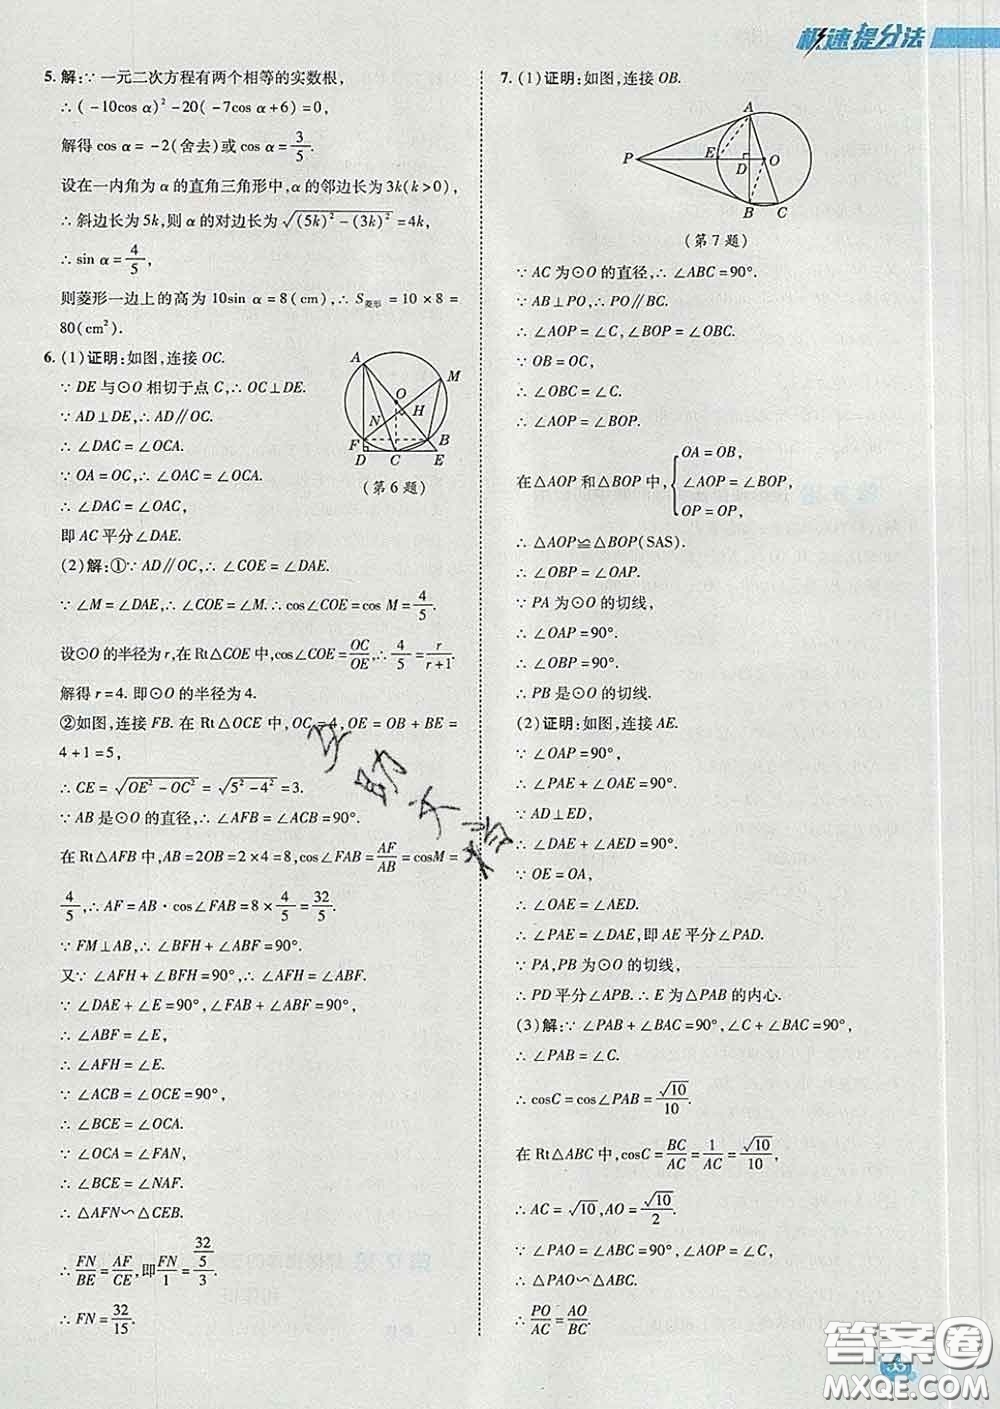 极速提分法
5. 解:∵ 一元二次方程有两个相等的实数根,
∴ (-10cos α)²-20(-7cos α+6)=0,
解得 cos α=-2(舍去)或 cos α=3/5.
设在一内角为 α 的直角三角形中,α 的邻边长为 3k(k>0),
∴ 斜边长为 5k,则 α 的对边长为 √((5k)²-(3k)²)=4k,
∴ sin α=4/5,
则菱形一边上的高为 10sin α=8(cm),∴ S菱形=10×8=
80(cm²).
6. (1)证明:如图,连接 OC.
∵ DE 与⊙O 相切于点 C,∴ OC⊥DE.
∵ AD⊥DE,∴ AD∥OC.
∴ ∠DAC=∠OCA.
∵ OA=OC,∴ ∠OAC=∠OCA.
∴ ∠DAC=∠OAC,
即 AC 平分∠DAE.
A
M
O
N
H
F
B
D
C
E
(第 6 题)
(2)解:①∵ AD∥OC,∴ ∠COE=∠DAE.
∵ ∠M=∠DAE,∴ ∠COE=∠M.∴ cos∠COE=cos M=4/5.
设⊙O 的半径为 r,在 Rt△COE 中,cos∠COE=OC/OE,∴ 4/5=r/(r+1).
解得 r=4. 即⊙O 的半径为 4.
②如图,连接 FB. 在 Rt△OCE 中,OC=4,OE=OB+BE=
4+1=5,
∴ CE=√(OE²-OC²)=√(5²-4²)=3.
∵ AB 是⊙O 的直径,∴ ∠AFB=∠ACB=90°.
在 Rt△AFB 中,AB=2OB=2×4=8,cos∠FAB=AF/AB=cosM=
4/5,∴ AF=AB·cos∠FAB=8×4/5=32/5.
∵ FM⊥AB,∴ ∠BFH+∠ABF=90°.
又∵ ∠AFH+∠BFH=90°,∴ ∠AFH=∠ABF.
∵ ∠DAE+∠E=90°,∠FAB+∠ABF=90°,
∴ ∠ABF=∠E,
∴ ∠AFH=∠E.
∵ ∠ACB=∠OCE=90°,
∴ ∠BCE=∠OCA.
∵ ∠OCA=∠FAN,
∴ ∠BCE=∠NAF.
∴ △AFN∽△CEB.
∴ FN/BE=AF/CE,即FN/1=(32/5)/3.
∴ FN=32/15.
7. (1)证明:如图,连接 OB.
A
P
E
D
O
B
C
(第 7 题)
∵ AC 为⊙O 的直径,∴ ∠ABC=90°.
∵ AB⊥PO,∴ PO∥BC.
∴ ∠AOP=∠C,∠BOP=∠OBC.
∵ OB=OC,
∴ ∠OBC=∠C.
∴ ∠AOP=∠BOP.
在△AOP 和△BOP 中,{OA=OB,
∠AOP=∠BOP,
OP=OP,
∴ △AOP≌△BOP(SAS).
∴ ∠OBP=∠OAP.
∵ PA 为⊙O 的切线,
∴ ∠OAP=90°.
∴ ∠OBP=90°.
∴ PB 是⊙O 的切线.
(2)证明:如图,连接 AE.
∵ ∠OAP=90°,
∴ ∠PAE+∠OAE=90°.
∵ AD⊥ED,
∴ ∠DAE+∠AED=90°.
∵ OE=OA,
∴ ∠OAE=∠AED.
∴ ∠PAE=∠DAE,即 AE 平分∠PAD.
∵ PA,PB 为⊙O 的切线,
∴ PD 平分∠APB.∴ E 为△PAB 的内心.
(3)解:∵ ∠PAB+∠BAC=90°,∠C+∠BAC=90°,
∴ ∠PAB=∠C.
∴ cosC=cos∠PAB=√10/10.
在 Rt△ABC 中,cosC=BC/AC=1/AC=√10/10,
∴ AC=√10,AO=√10/2.
∵ ∠PAO=∠ABC=90°,∠AOP=∠C,
∴ △PAO∽△ABC.
∴ PO/AC=AO/BC.
答案圈
MXQE.COM